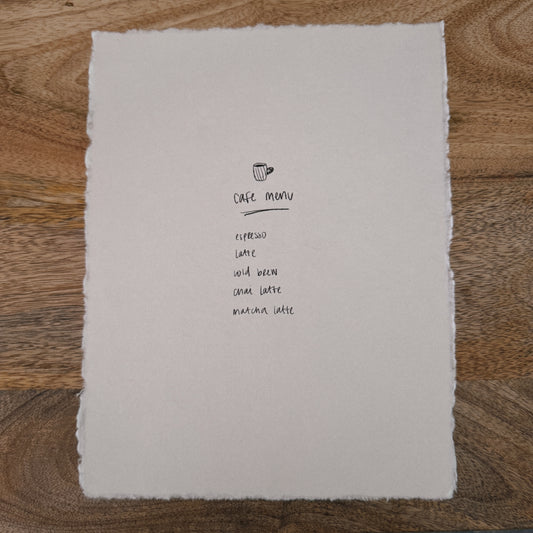 cafe menu
espresso
latte
cold brew
chai latte
matcha latte